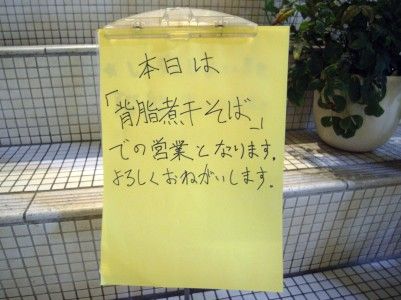 本日は
「背脂煮干そば」
での営業となります.
よろしくおねがいします.